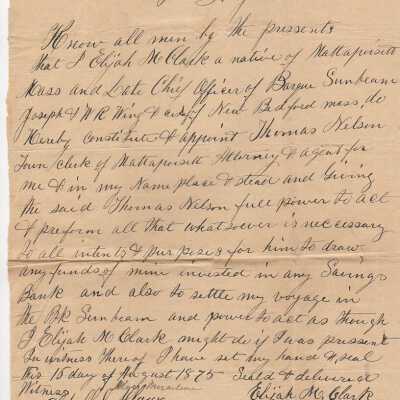 Know all men by the pressents
that I Elijah M Clark a native of Mattapoisett
Mass and Late Chief Officer of Barque Sunbeam
Joseph & W R Wing & Co of New Bedford mass, do
Hereby Constitute & appoint Thomas Nelson
Town Clerk of Mattapoisett Attorney & agent for
me & in my Name place & stead and Giving
the said Thomas Nelson full power to act
& preform all that whatsoever is neccessary
to all intents & purposes for him to draw
any funds of mine invested in any Savings
Bank and also to settle my voyage in
the Bk Sunbeam and power to act as though
I Elijah M Clark might do if I was pressent
In witness thereof I have set my hand & seal
this 15 day of August 1875 Seald & deliverd
Witness
Elijah M. Clark